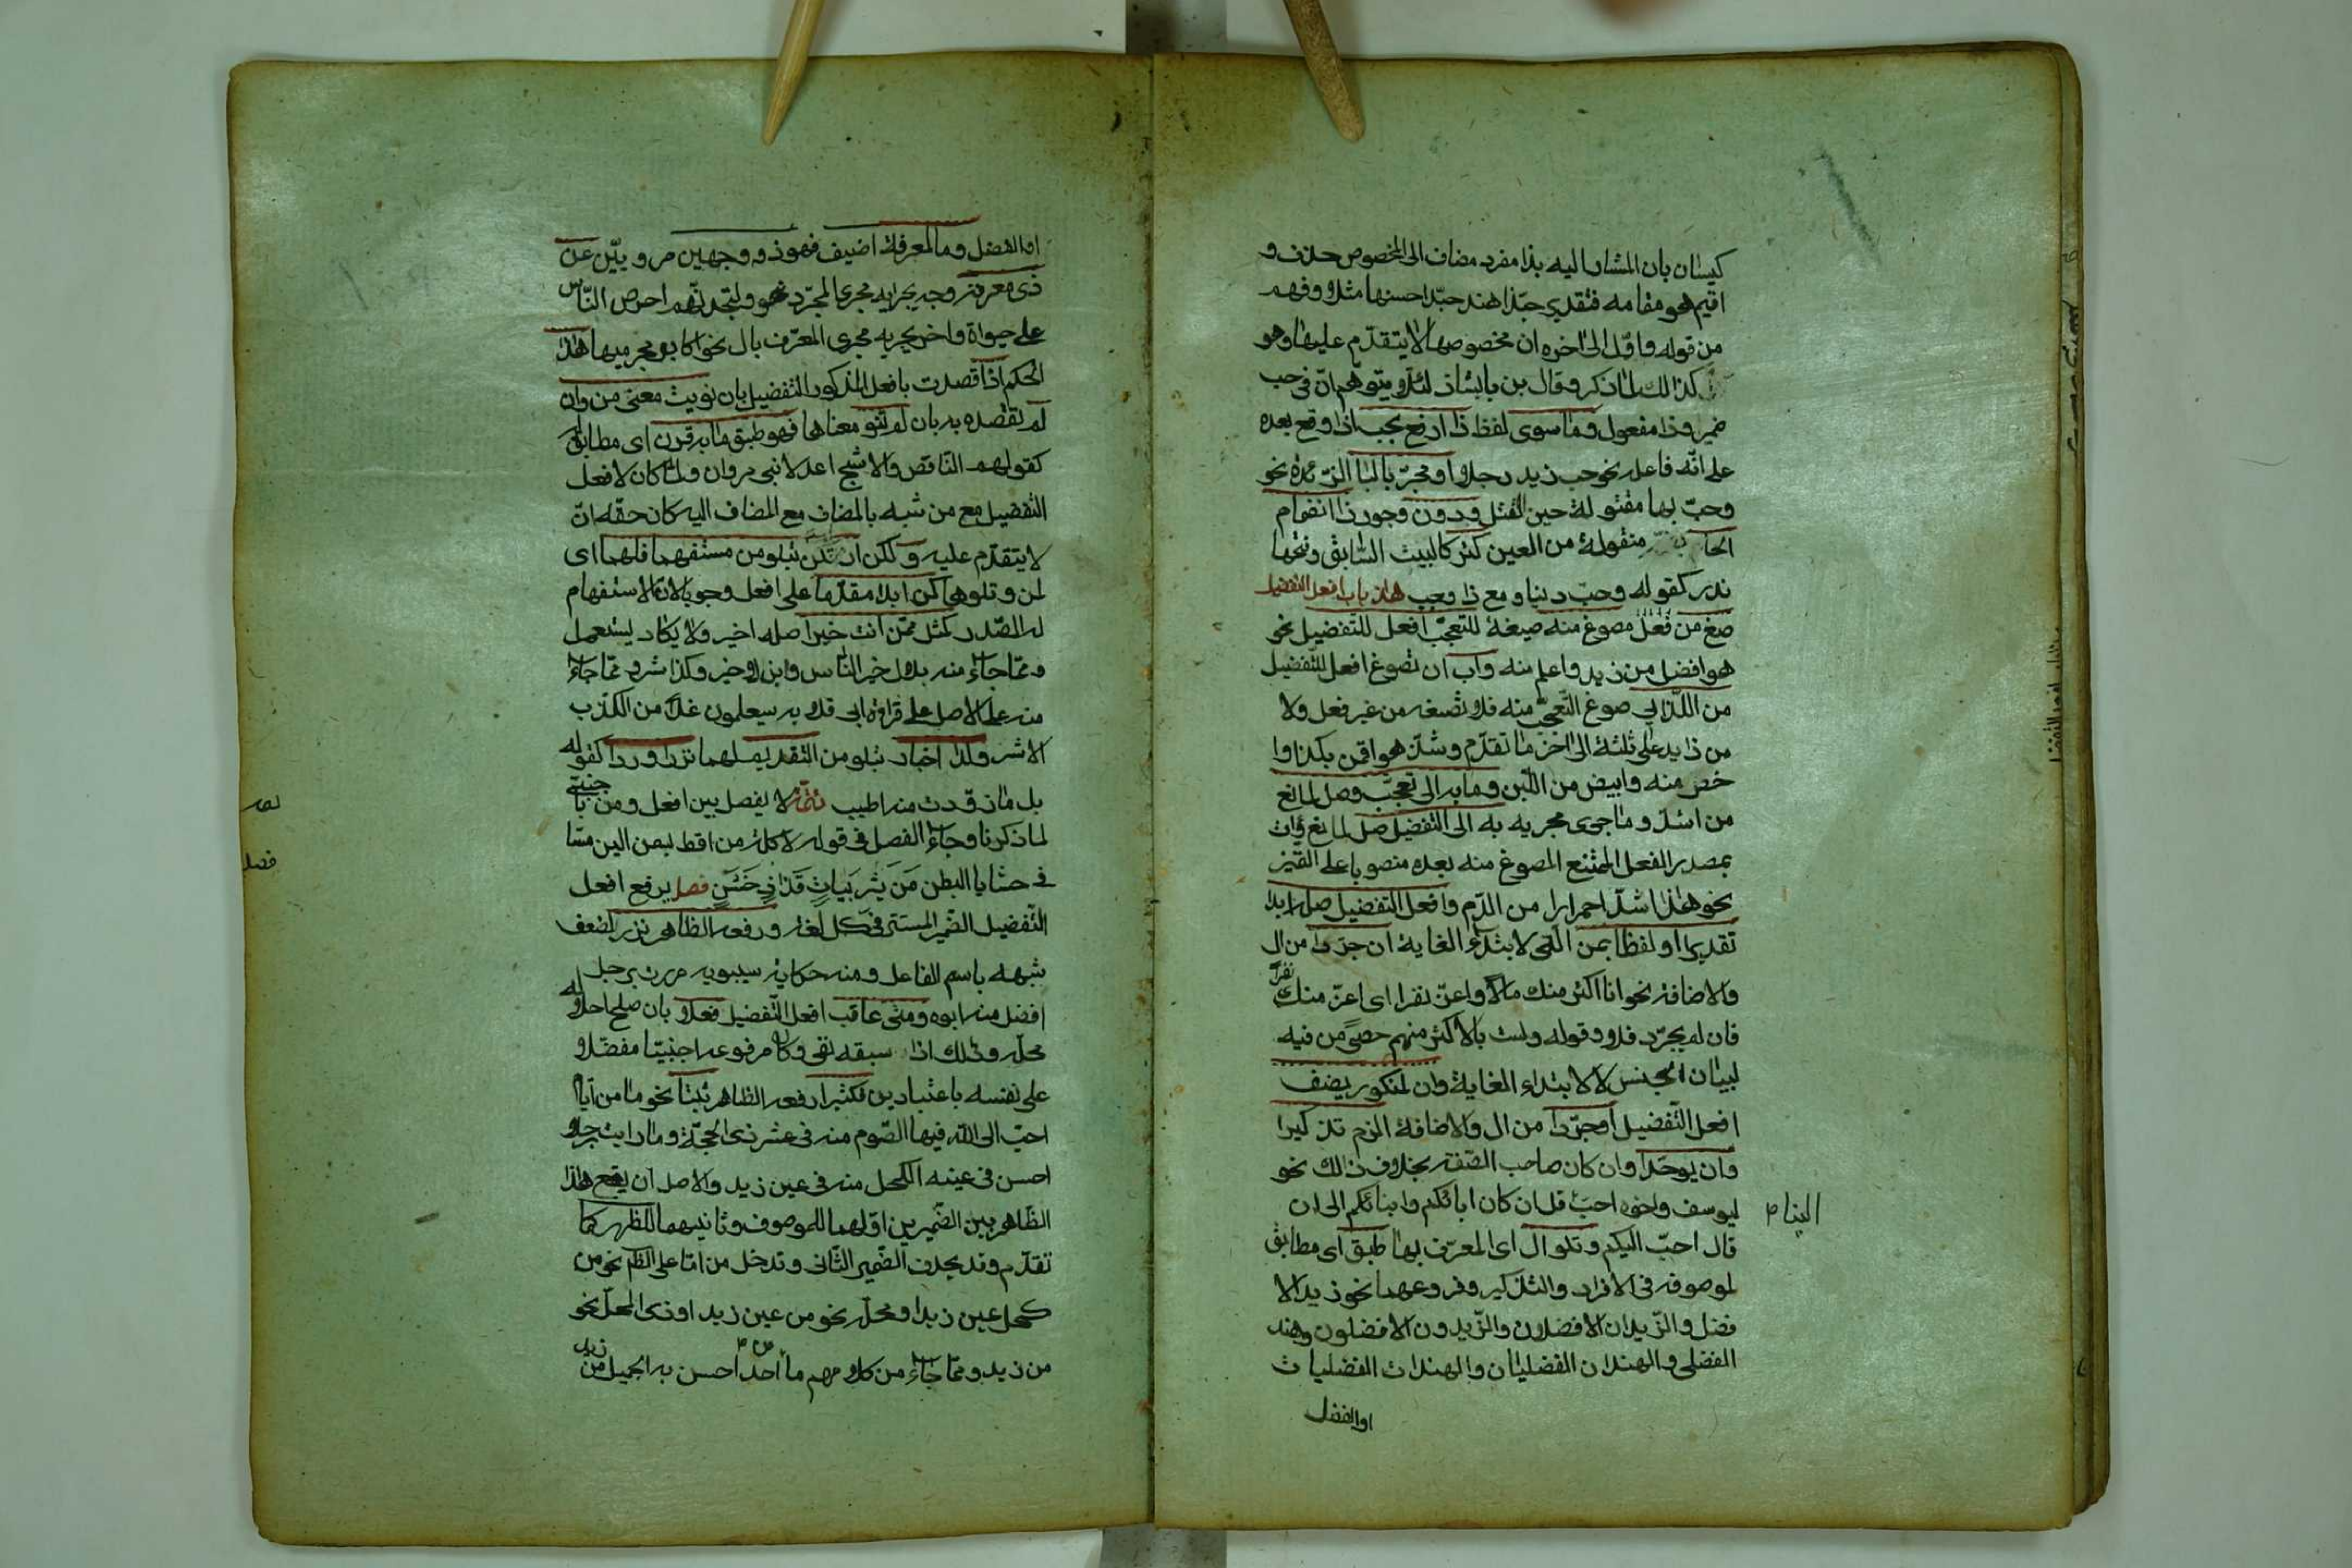 كيسان بان المشار اليه بذا مفرد مضاف الى المخصوص حذف و
اقيم هو مقامه فتقدير حبّذا هند حبّذا حسنها مثلا وفهم
من قوله واوّل الى اخره ان مخصوصها لا يتقدّم عليها وهو
كذالك لما ذكر وقال بن بابشاذ لئلا يتوهّم انّ فى حب
ضمير وذا مفعول وما سوى لفظ ذا ارفع بحب اذا وقع بعده
على انّه فاعله نحو حب زيد رجلا او فجرّ بالبا الزّئدة نحو
وحبّ بها مقتولة حين تقتل ودون وجود ذا انضمام
الحا منقولة من العين كثر كالبيت السّابق وفتحها
ندر كقوله وحبّ دينا ومع ذا وجب هذا باب افعل التفضيل
صغ من فعل مصوغ منه صيغة للتعجّب افعل للتفضيل نحو
هو افضل من زيد واعلم منه وأب ان تصوغ افعل للتفضيل
من اللّذ ابى صوغ التّعجّب منه فلا تصغه من غير فعل ولا
من زايد على ثلثة الى اخر ما تقدّم وشذّ هو اقمن بكذا وا
خصر منه وابيض من اللّبن وما به الى تعجّب وصل لمانع
من اشدّ وما جرى مجريه به الى التّفضيل صل لمانع وات
بمصدر الفعل الممتنع المصوغ منه بعده منصوبا على التّميز
نحو هذا اشدّ احمرارا من الدّم وافعل التفضيل صله ابدا
تقديرا او لفظا بمن الّتى لابتداء الغاية ان جرّدا من ال
والاضافة نحو انا اكثر منك مالا واعزّ نفرا اى اعزّ منك
نفرا
فان لم يجرّد فلا وقوله ولست بالاكثر منهم حصىً من فيه
لبيان الجنس لا لابتداء الغاية وان لمنكور يضف
افعل التّفضيل او جرّدا من ال والاضافة الزم تذكيرا
وان يوحّدا وان كان صاحب الصّفة بخلاف ذالك نحو
ليوسف واخوه احبّ قل ان كان ابائكم وابنائكم الى ان
الينا م
قال احبّ اليكم وتلو ال اى المعرّف بها طبق اى مطابق
لموصوفه فى الافراد والتذكير وفروعهما نحو زيد الا
فضل والزّيدان الافضلان والزّيدون الافضلون وهند
الفضلى والهندان الفضليان والهندات الفضليات
او الفضل
او الفضل وما لمعرفة اضيف فهو ذو وجهين مروييّن عن
ذى معرفة وجه يجرايه مجرى المجرّد نحو ولتجدنّهم احرص النّاس
على حيواة واخر يجريه مجرى المعرّف بال نحو اكابر مجرميها هذا
الحكم اذا قصدت بافعل المذكور التّفضيل بان نويت معنى من وان
لم تقصده به بان لم تنو معناها فهو طبق ما به قرن اى مطابق له
كقولهم النّاقص والاشجّ اعدلا بنى مروان ولما كان لافعل
التّفضيل مع من شبه بالمضاف مع المضاف اليه كان حقّه ان
لا يتقدّم عليه ولكن ان تكن بتلو من مستفهما فلهما اى
لمن وتلوها كن ابدا مقدّما على افعل وجوبا لانّ الاستفهام
له الصّدر كمثل ممّن انت خير اصله اخير ولا يكاد يستعمل
وممّا جاء منه بلال خير النّاس وابن الاخير وكذا شر وممّا جاء
منه على الاصل على قراءة ابى قلابه سيعلمون غداً من الكذّب
الاشر ولدا اخبار بتلو من التقديم لهما نزرا وردا كقوله
بل ما زوّدت منه اطيب تتمّة لا يفصل بين افعل ومن باجنبىّ
لما ذكرنا وجاء الفصل فى قوله لاكلة من اقط بسمن الين مسّا
فى حشايا البطن من يثربيات قذاذ خشن فصل يرفع افعل
التّفضيل الضّمير المستتر فى كل لغة ورفعه الظّاهر نزر لضعف
شبهه باسم الفاعل ومنه حكاية سيبويه مررت برجل
افضل منه ابوه ومتى عاقب افعل التّفضيل فعلا بان صلح احلاله
محلّه وذلك اذا سبقه نفى وكان مرفوعه اجنبيّا مفضّلا
على نفسه باعتبارين فكثيرا رفعه الظاهر ثبتا نحو ما من ايّام
احبّ الى اللّه فيها الصّوم منه فى عشر ذى الحجّة وما رايت رجلا
احسن فى عينه الكحل منه فى عين زيد والاصل ان يقع هذا
الظّاهر بين الضّميرين اوّلهما للموصوف وثانيهما للظّاهر كما
تقدّم وقد يحذف الضّمير الثّانى وتدخل من امّا على الظّاهر نحو من
كحل عين زيد او محلّه نحو من عين زيد او ذى المحلّ نحو
من زيد وممّا جاء من كلامهم ما احد احسن به الجميل من
زيد